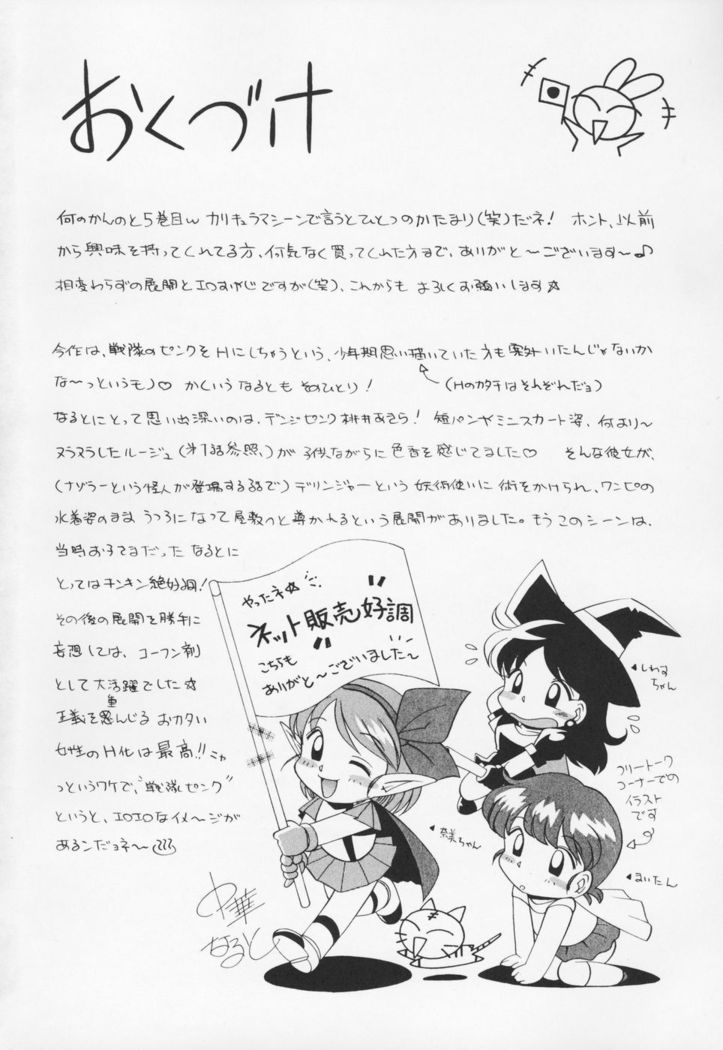 おくづけ
何のかんのと5巻目w カリキュラマシーンで言うとひとつのかたまり(笑)だネ! ホント、以前
から興味を持ってくれてる方、何気なく買ってくれた方まで、ありがと〜ございます〜♪
相変わらずの展開とエロおやじですが(笑)、これからも よろしくお願いします☆
今作は、戦隊のピンクをHにしちゃうという、少年期思い描いていた方も案外いたんじゃないか
な〜っというモノ♡ かくいうなるとも そのひとり!
(Hのカタチはそれぞれだョ)
なるとにとって思い出深いのは、デンジピンク桃井あきら! 短パンやミニスカート姿、何より〜
ヌラヌラしたルージュ(第1話参照、)が 子供ながらに色香を感じてました♡ そんな彼女が、
(ナゾラーという怪人が登場する話で)デリンジャーという妖術使いに術をかけられ、ワンピの
水着姿のまま うつろになって屋敷へと導かれるという展開がありました。もうこのシーンは、
当時お子さまだった なるとに
とってはチンチン絶好調!
その後の展開を勝手に
妄想しては、コーフン剤
として大活躍でした☆
正義を重んじるおカタい
女性のH化は最高!!ニャ
っというワケで、"戦隊ピンク"
というと、エロエロなイメージが
あるンだョネ〜
中華
なると
やったネ☆
ネット販売好調
こちらも
ありがと〜ございました〜
しわすちゃん
フリートーク
コーナーでの
イラスト
です
奈美ちゃん
まいたん